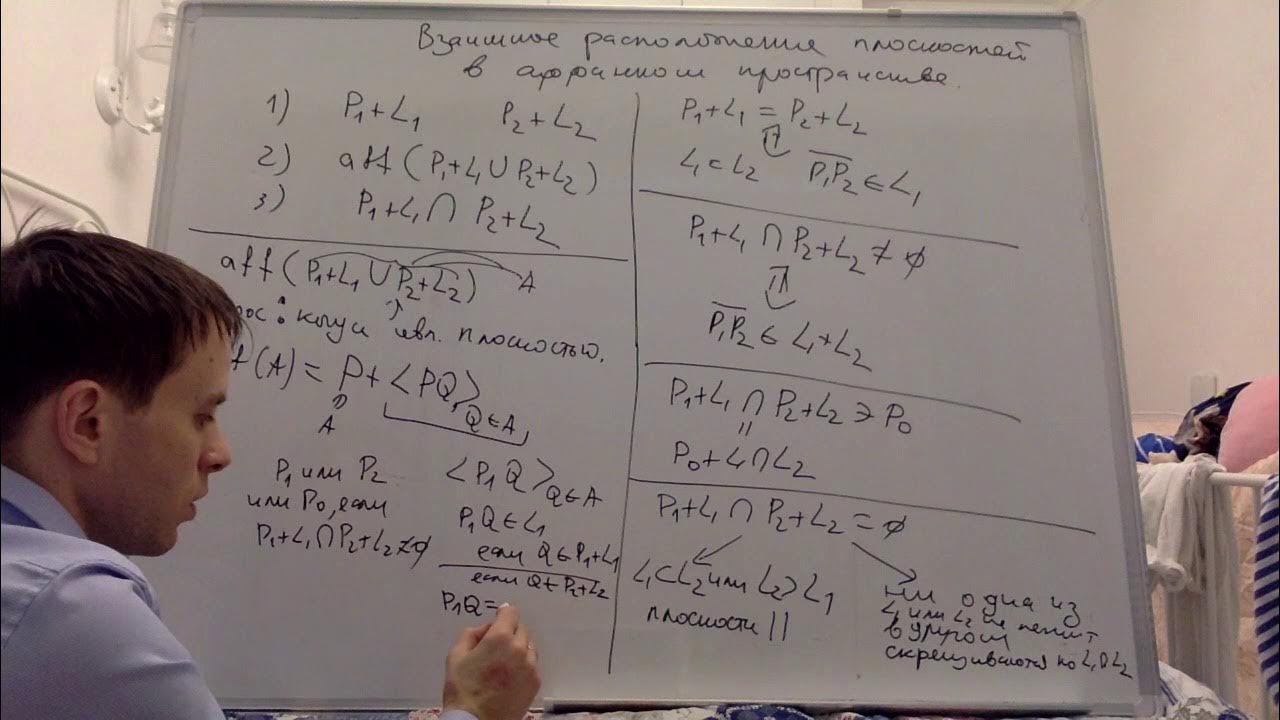 Взаимное расположение плоскостей
в аффинном пространстве.
1) P₁+L₁ P₂+L₂
2) aff (P₁+L₁ ∪ P₂+L₂)
3) P₁+L₁ ∩ P₂+L₂
aff (P₁+L₁ ∪ P₂+L₂) A
рос: когда явл. плоскостью.
f(A) = P + <PQ>Q∈A
A
P₁ или P₂
или P₀, если
P₁+L₁ ∩ P₂+L₂ ≠ ∅
<P₁Q>Q∈A
P₁Q ∈ L₁
если Q ∈ P₁+L₁
если Q ∈ P₂+L₂
P₁Q =
P₁+L₁ = P₂+L₂
L₁ = L₂ P₁P₂ ∈ L₁
P₁+L₁ ∩ P₂+L₂ ≠ ∅
P₁P₂ ∈ L₁+L₂
P₁+L₁ ∩ P₂+L₂ ∋ P₀
=
P₀+L₁∩L₂
P₁+L₁ ∩ P₂+L₂ = ∅
L₁⊂L₂ или L₂⊃L₁
плоскости ||
ни одна из
L₁ или L₂ не лежит
в другой
скрещиваются по L₁∩L₂